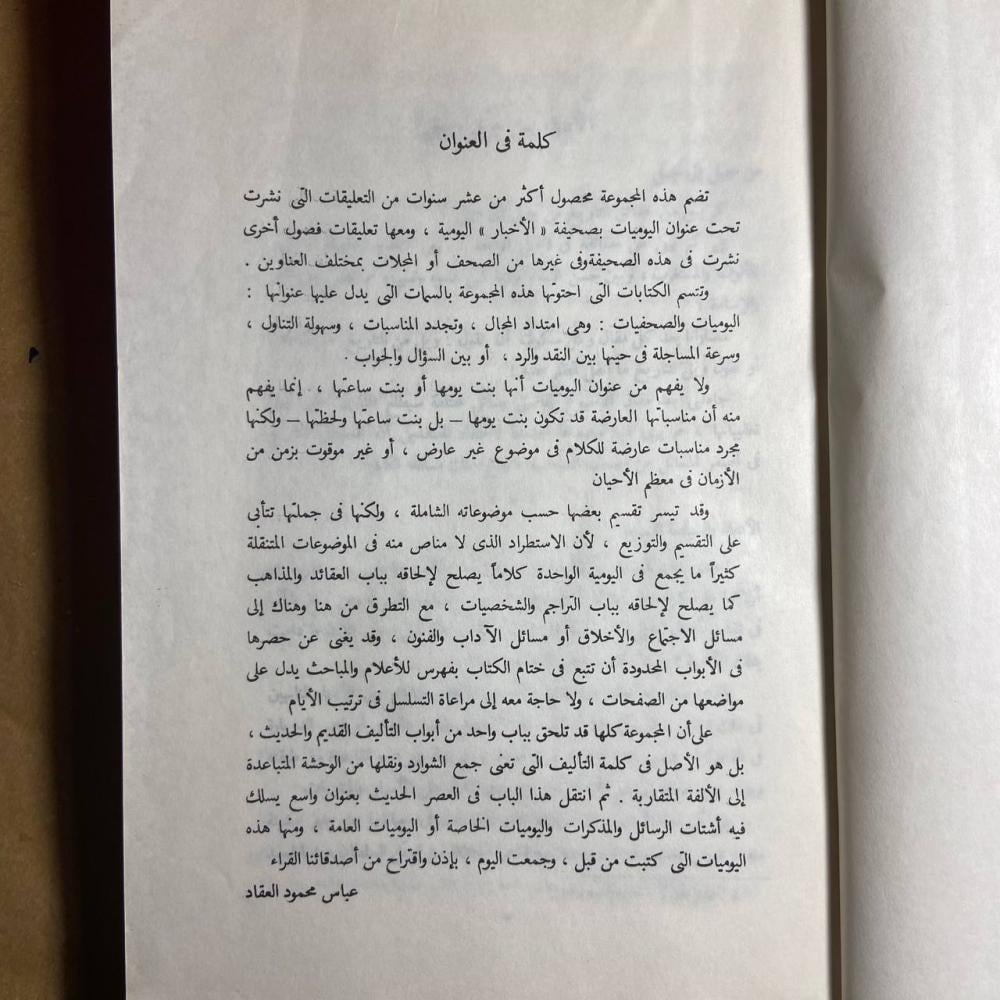 كلمة فى العنوان
تضم هذه المجموعة محصول أكثر من عشر سنوات من التعليقات التى نشرت
تحت عنوان اليوميات بصحيفة « الأخبار » اليومية ، ومعها تعليقات فصول أخرى
نشرت فى هذه الصحيفة وفى غيرها من الصحف أو المجلات بمختلف العناوين .
وتتسم الكتابات التى احتوتها هذه المجموعة بالسمات التى يدل عليها عنوانها :
اليوميات والصحفيات : وهى امتداد المجال ، وتجدد المناسبات ، وسهولة التناول ،
وسرعة المساجلة فى حينها بين النقد والرد ، أو بين السؤال والجواب .
ولا يفهم من عنوان اليوميات أنها بنت يومها أو بنت ساعتها ، إنما يفهم
منه أن مناسباتها العارضة قد تكون بنت يومها — بل بنت ساعتها ولحظتها — ولكنها
مجرد مناسبات عارضة للكلام فى موضوع غير عارض ، أو غير موقوت بزمن من
الأزمان فى معظم الأحيان
وقد تيسر تقسيم بعضها حسب موضوعاته الشاملة ، ولكنها فى جملتها تتأبى
على التقسيم والتوزيع ، لأن الاستطراد الذى لا مناص منه فى الموضوعات المتنقلة
كثيراً ما يجمع فى اليومية الواحدة كلاماً يصلح لإلحاقه بباب العقائد والمذاهب
كما يصلح لإلحاقه بباب التراجم والشخصيات ، مع التطرق من هنا وهناك إلى
مسائل الاجتماع والأخلاق أو مسائل الآداب والفنون ، وقد يغنى عن حصرها
فى الأبواب المحدودة أن تتبع فى ختام الكتاب بفهرس للأعلام والمباحث يدل على
مواضعها من الصفحات ، ولا حاجة معه إلى مراعاة التسلسل فى ترتيب الأيام
على أن المجموعة كلها قد تلحق بباب واحد من أبواب التأليف القديم والحديث ،
بل هو الأصل فى كلمة التأليف التى تعنى جمع الشوارد ونقلها من الوحشة المتباعدة
إلى الألفة المتقاربة . ثم انتقل هذا الباب فى العصر الحديث بعنوان واسع يسلك
فيه أشتات الرسائل والمذكرات واليوميات الخاصة أو اليوميات العامة ، ومنها هذه
اليوميات التى كتبت من قبل ، وجمعت اليوم ، بإذن واقتراح من أصدقائنا القراء
عباس محمود العقاد